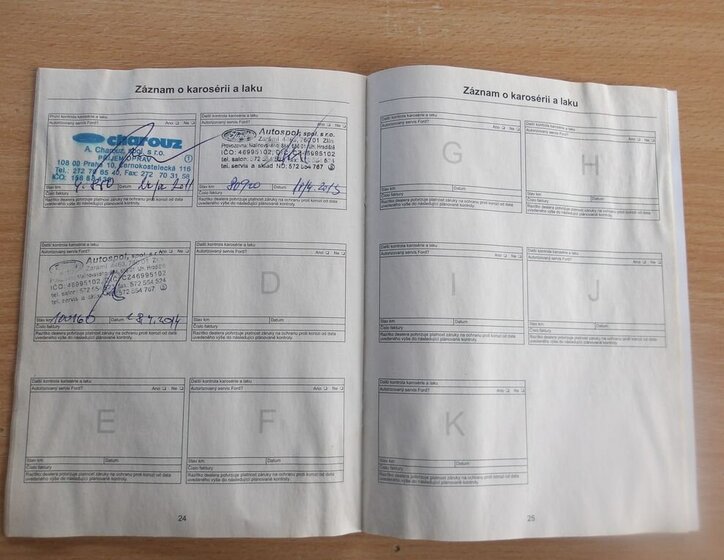 Záznam o karosérii a laku
První kontrola karosérie a laku
Autorizovaný servis Ford? Ano ❏ Ne ❏
charouz
A. Charouz, spol. s r.o.
PŘÍJEM OPRAV ①
108 00 Praha 10, Černokostelecká 116
Tel.: 272 70 65 40, Fax: 272 70 31 58
IČO:
Stav km Datum
Číslo faktury
Razítko dealera potvrzuje platnost záruky na ochranu proti korozi od data
uvedeného výše do následující plánované kontroly.
Další kontrola karosérie a laku
Autorizovaný servis Ford? Ano ❏ Ne ❏
Autospol, spol. s r.o.
Zarámí 4463, 76201 Zlín
IČO: 46995102,
tel. servis a sklad ND: 572 554 767
Stav km 80900 Datum 11/4.2013
Číslo faktury
Razítko dealera potvrzuje platnost záruky na ochranu proti korozi od data
uvedeného výše do následující plánované kontroly.
Další kontrola karosérie a laku
Autorizovaný servis Ford? Ano ❏ Ne ❏
Autospol, spol. s r.o.
Zarámí 4463, 76201 Zlín
IČO: 46995102, CZ46995102
tel. servis a sklad 572 554 767
Stav km Datum
Číslo faktury
Razítko dealera potvrzuje platnost záruky na ochranu proti korozi od data
uvedeného výše do následující plánované kontroly.
Další kontrola karosérie a laku
Autorizovaný servis Ford? Ano ❏ Ne ❏
D
Stav km Datum
Číslo faktury
Razítko dealera potvrzuje platnost záruky na ochranu proti korozi od data
uvedeného výše do následující plánované kontroly.
Další kontrola karosérie a laku
Autorizovaný servis Ford? Ano ❏ Ne ❏
E
Stav km Datum
Číslo faktury
Razítko dealera potvrzuje platnost záruky na ochranu proti korozi od data
uvedeného výše do následující plánované kontroly.
Další kontrola karosérie a laku
Autorizovaný servis Ford? Ano ❏ Ne ❏
F
Stav km Datum
Číslo faktury
Razítko dealera potvrzuje platnost záruky na ochranu proti korozi od data
uvedeného výše do následující plánované kontroly.
24
Záznam o karosérii a laku
Další kontrola karosérie a laku
Autorizovaný servis Ford? Ano ❏ Ne ❏
G
Stav km Datum
Číslo faktury
Razítko dealera potvrzuje platnost záruky na ochranu proti korozi od data
uvedeného výše do následující plánované kontroly.
Další kontrola karosérie a laku
Autorizovaný servis Ford? Ano ❏ Ne ❏
H
Stav km Datum
Číslo faktury
Razítko dealera potvrzuje platnost záruky na ochranu proti korozi od data
uvedeného výše do následující plánované kontroly.
Další kontrola karosérie a laku
Autorizovaný servis Ford? Ano ❏ Ne ❏
I
Stav km Datum
Číslo faktury
Razítko dealera potvrzuje platnost záruky na ochranu proti korozi od data
uvedeného výše do následující plánované kontroly.
Další kontrola karosérie a laku
Autorizovaný servis Ford? Ano ❏ Ne ❏
J
Stav km Datum
Číslo faktury
Razítko dealera potvrzuje platnost záruky na ochranu proti korozi od data
uvedeného výše do následující plánované kontroly.
Další kontrola karosérie a laku
Autorizovaný servis Ford? Ano ❏ Ne ❏
K
Stav km Datum
Číslo faktury
Razítko dealera potvrzuje platnost záruky na ochranu proti korozi od data
uvedeného výše do následující plánované kontroly.
25